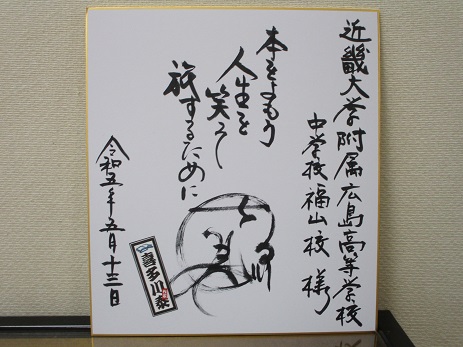 近畿大学附属広島高等学校
中学校福山校 様
本をよもう
人生を
笑って
旅するために
令和五年五月十三日
喜多川泰